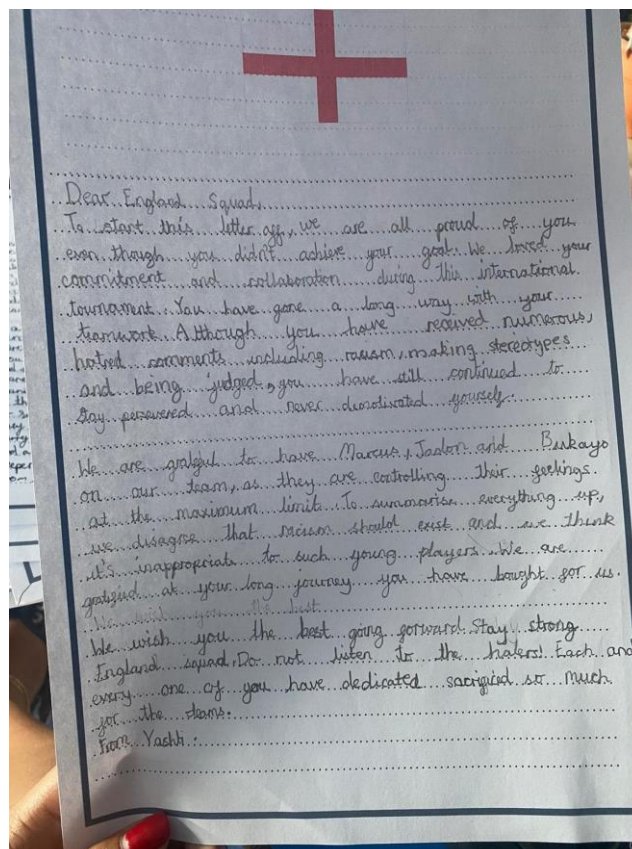 Dear England Squad,
To start this letter off, we are all proud of you
even though you didn't achieve your goal. We loved your
commitment and collaboration during this international
tournament. You have gone a long way with your
teamwork. Although you have received numerous,
hatred comments including racism, making stereotypes
and being judged, you have still continued to
stay persevered and never demotivated yourself.
We are grateful to have Marcus, Jadon and Bukayo
on our team, as they are controlling their feelings
at the maximum limit. To summarise everything up,
we disagree that racism should exist and we think
it's inappropriate to such young players. We are
gratified at your long journey you have bought for us.
We wish you the best
We wish you the best going forward. Stay strong
England squad. Do not listen to the haters! Each and
every one of you have dedicated sacrificed so much
for the teams.
From Yashti